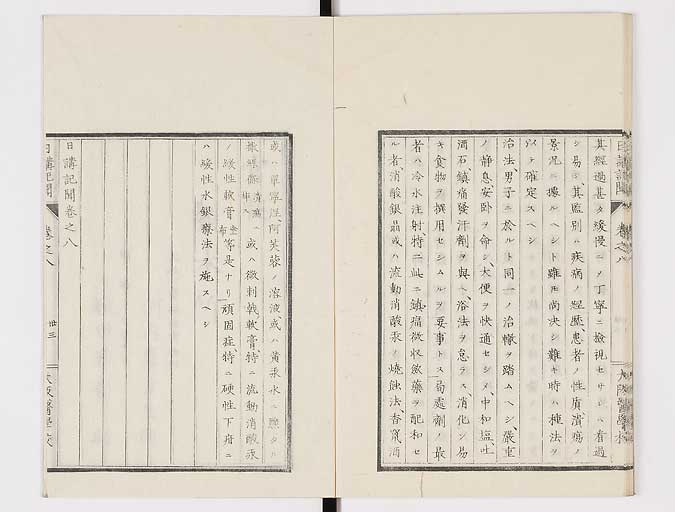 其經過甚タ緩慢ニメ丁寧ニ檢視セサレハ看過
シ易シ其鑑別ハ疾病ノ經歷、患者ノ性質、潰瘍ノ
景況ニ據ルヘシト雖モ尚決シ難キ時ハ種法ヲ
以テ確定スヘシ
治法男子ニ於ルト同一ノ治轍ヲ踏ムヘシ、嚴重
ノ靜息、安卧ヲ命シ、大便ヲ快通セシメ、中和塩、吐
酒石鎮痛發汗劑ヲ與ヘ、浴法ヲ怠ラス、消化シ易
キ食物ヲ撰用セシムルヲ要事トス局處劑ノ最
者ハ冷水注射、特ニ此ニ鎮痛微收斂藥ヲ配和セ
ル者消酸銀晶或ハ流動消酸汞ノ燒蝕法、香竄酒
或ハ單寧涅、阿芙蓉ノ溶液、或ハ黃汞水ニ醮タル
撒綿絲 或ハ微刺戟軟膏特ニ流動消酸汞
ノ緩性軟膏 塗布 等是ナリ頑固症特ニ硬性下疳ニ
ハ緩性水銀療法ヲ施スヘシ
日講記聞卷之八
日講記聞
卷之八
大阪醫學校
日講記聞
卷之八
卅三
大阪醫學校